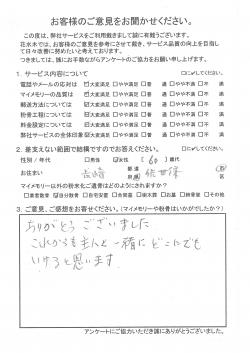 お客様のご意見をお聞かせください。
この度は、弊社サービスをご利用戴きまして誠に有難うございます。
花水木では、お客様のご意見を参考にさせて戴き、サービス品質の向上を目指して
日々改善に努めたいと考えております。
つきましては、誠にお手数ながらアンケートのご協力をお願い申し上げます。
1. サービス内容について
☑してください。
電話やメールの応対は ☑大変満足 □やや満足 □普 通 □やや不満 □不 満
マイメモリーの品質は ☑大変満足 □やや満足 □普 通 □やや不満 □不 満
郵送方法について ☑大変満足 □やや満足 □普 通 □やや不満 □不 満
粉骨工程について ☑大変満足 □やや満足 □普 通 □やや不満 □不 満
料金設定については ☑大変満足 □やや満足 □普 通 □やや不満 □不 満
弊社サービスの全体印象 ☑大変満足 □やや満足 □普 通 □やや不満 □不 満
2. 差支えない範囲で結構ですのでお答えください。
☑してください。
性別 / 年代 □男性 ☑女性 ( 60 ) 歳代
お住まい 長崎 都 道 府 県 佐世保 市
マイメモリー以外の粉末化ご遺骨はどのようにされますか?
3. ご意見、ご感想をお寄せください。(マイメモリーや粉骨はいかがでしたか?)
ありがとうございました
これからも主人と一緒にどこにでも
いけると思います
アンケートにご協力いただき誠にありがとうございました。